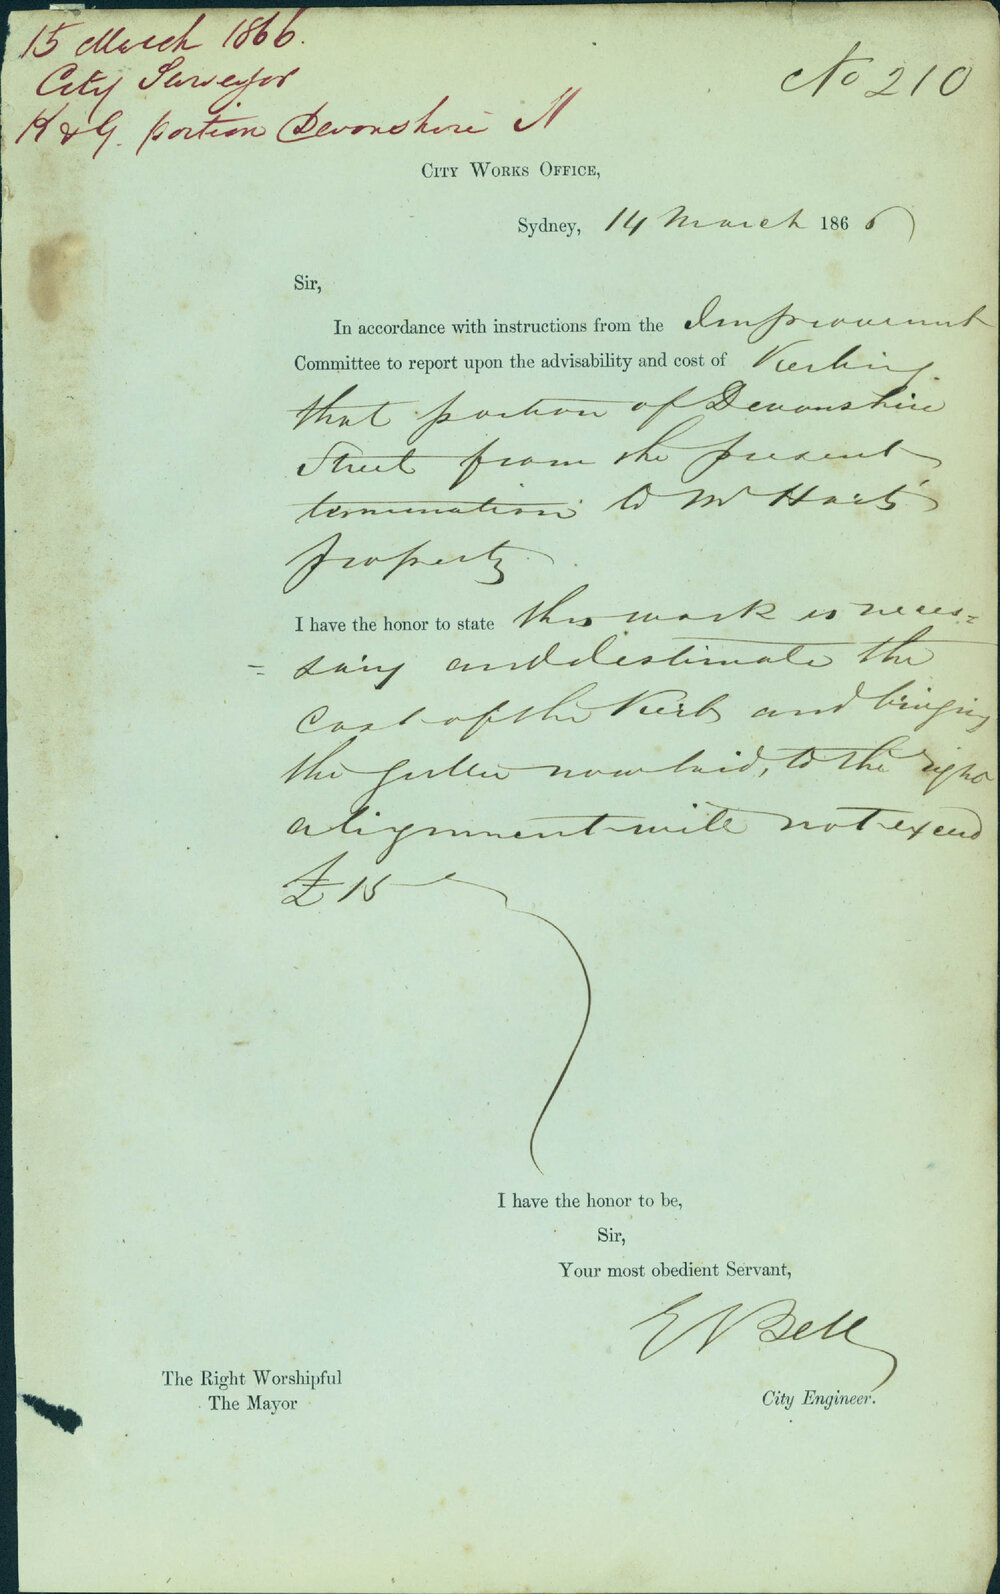 15 March 1866.
City Surveyor
K & G. portion Devonshire St
No 210
CITY WORKS OFFICE,
Sydney, 14 March 1866
Sir,
In accordance with instructions from the Improvement
Committee to report upon the advisability and cost of Kerbing
that portion of Devonshire
Street from the present
termination to Mr Hart's
property
I have the honor to state this work is neces=
=sary and I estimate the
cost of the Kerb and bringing
the gutter now laid, to the right
alignment will not exceed
£15
I have the honor to be,
Sir,
Your most obedient Servant,
E Bell
City Engineer.
The Right Worshipful
The Mayor